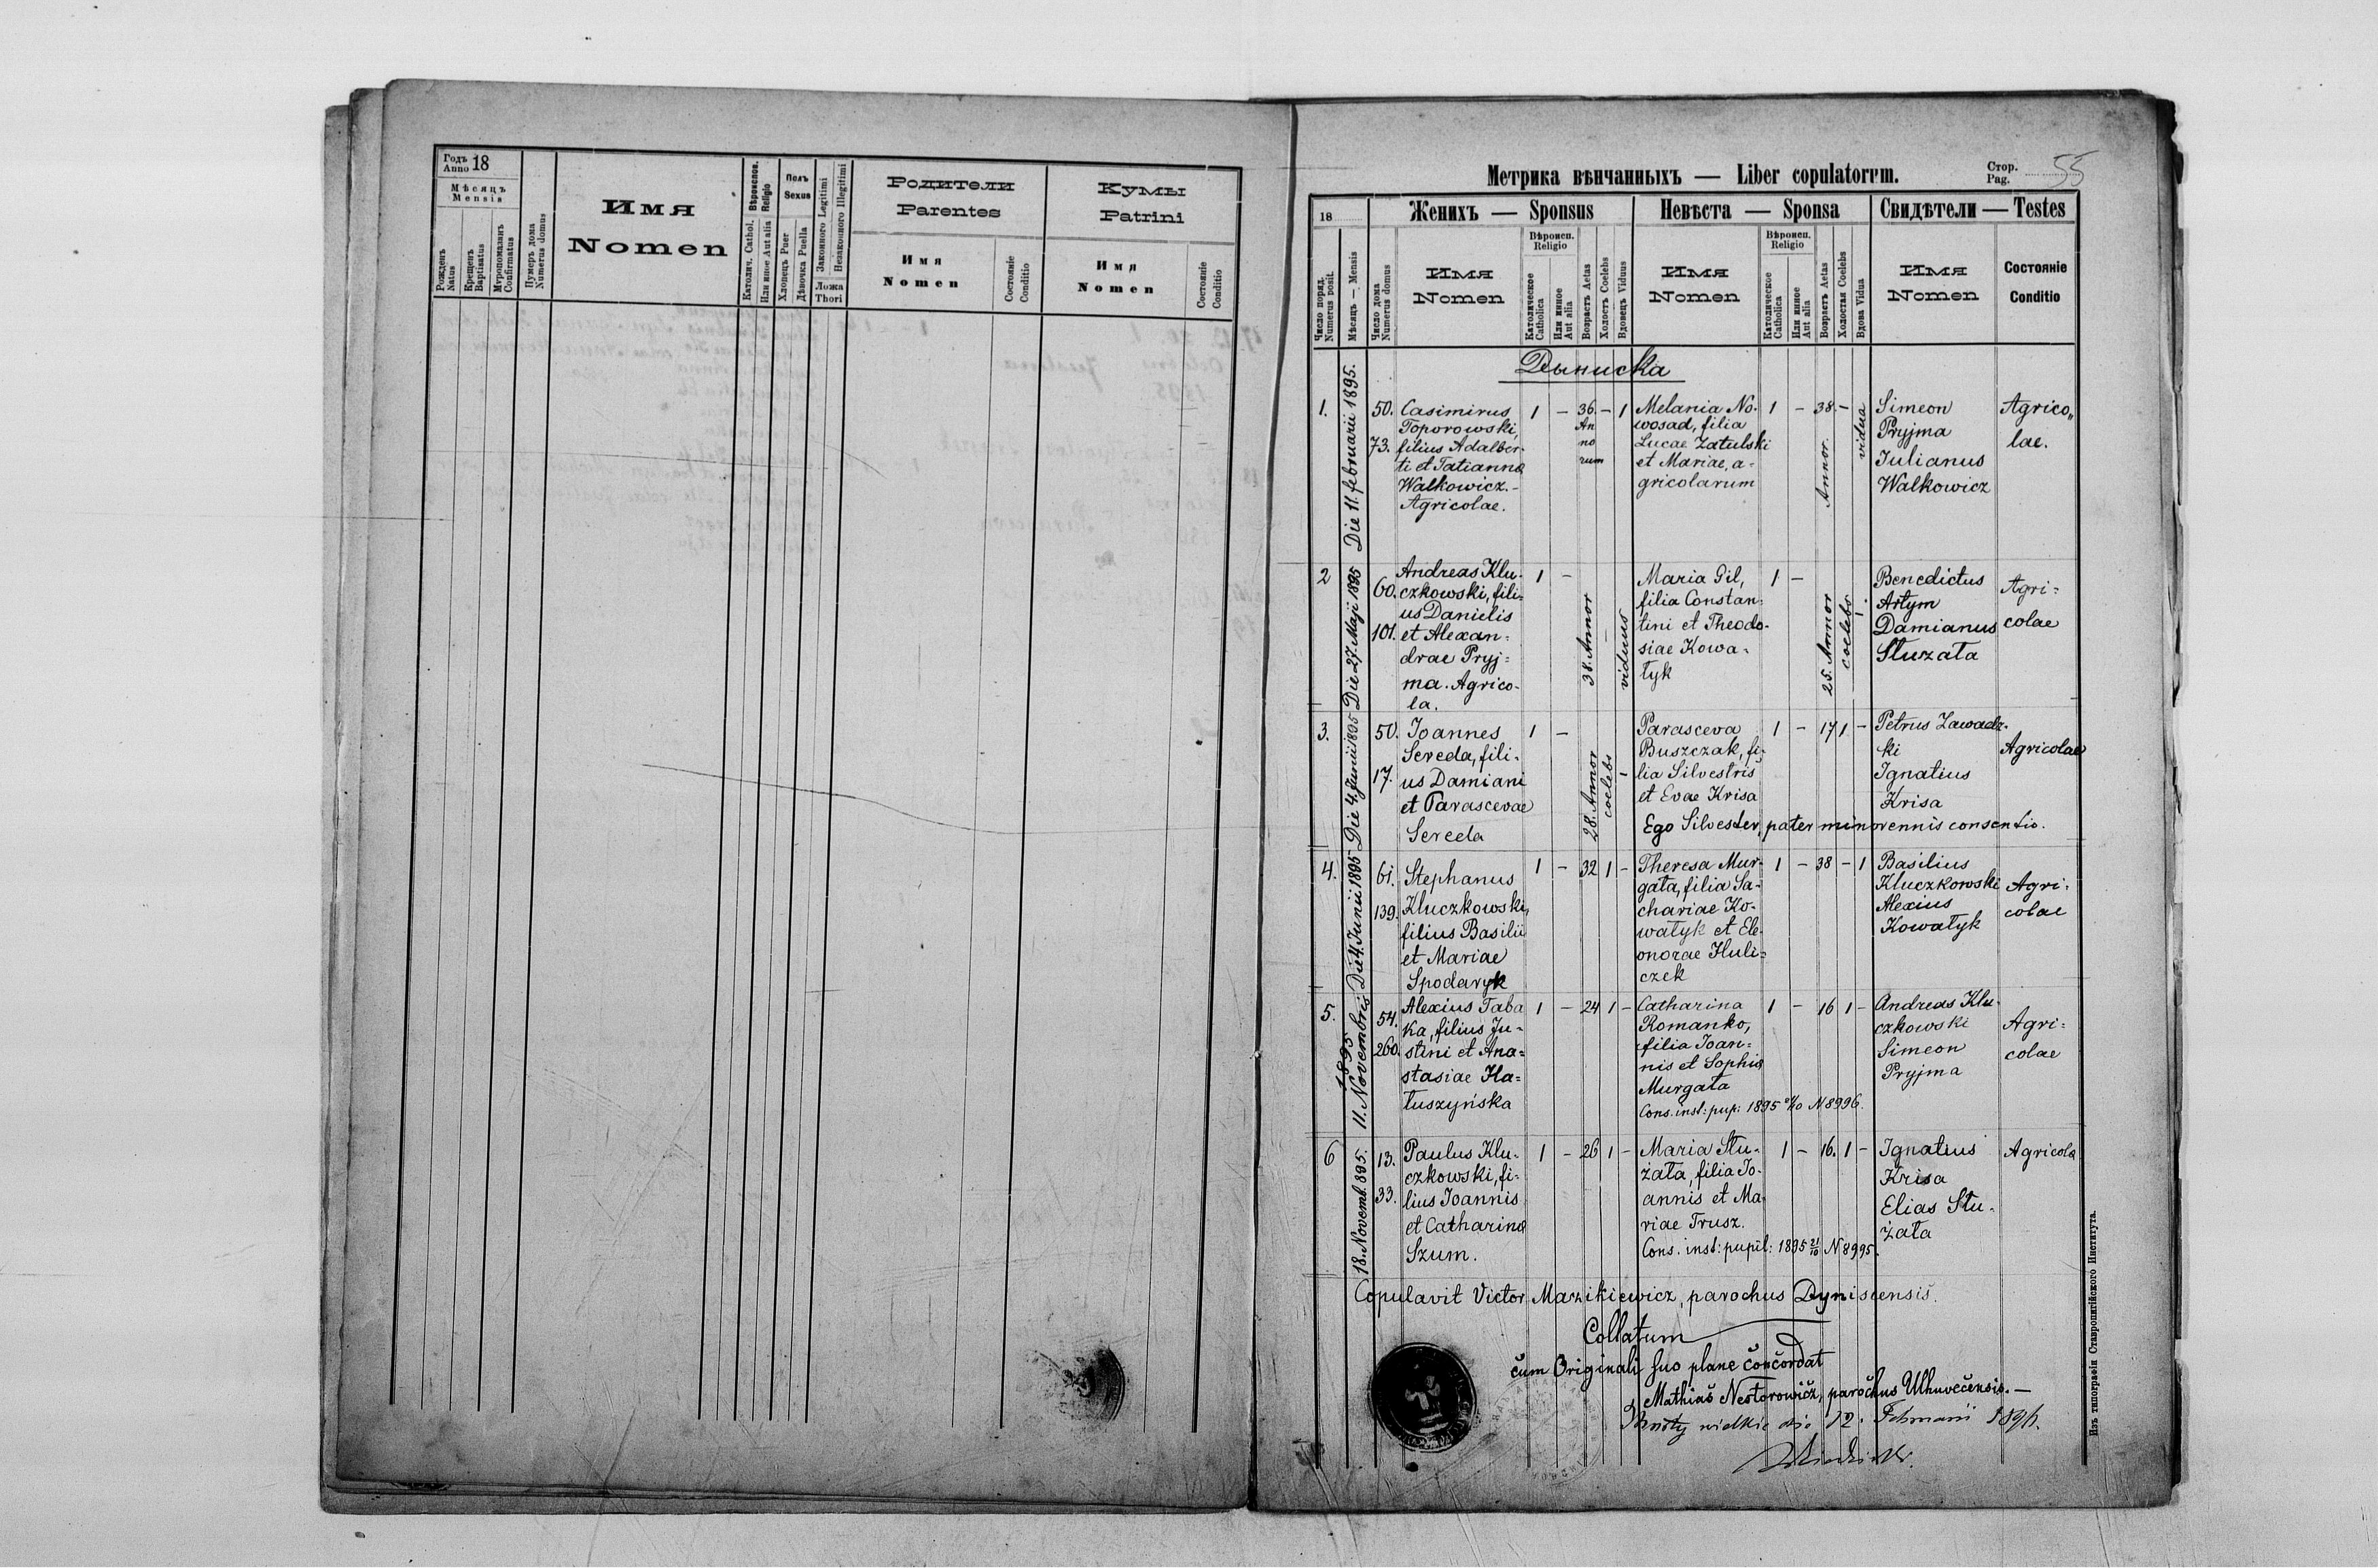 Годъ 18
Anno
Мѣсяцъ
Mensis
Рожденъ
Natus
Крещенъ
Baptisatus
Мѵропомазанъ
Confirmatus
Нумеръ дома
Numerus domus
Имя
Nomen
Вѣроиспов.
Religio
Католич. Cathol.
Или иное Aut alia
Полъ
Sexus
Хлопецъ Puer
Дѣвочка Puella
Законного Legitimi
Незаконного Illegitimi
Ложа
Thori
Родители
Parentes
Имя
Nomen
Состояніе
Conditio
Кумы
Patrini
Имя
Nomen
Состояніе
Conditio
Метрика вѣнчанныхъ — Liber copulatorrm.
Стор.
Pag. 55
18
Женихъ — Sponsus
Невѣста — Sponsa
Свидѣтели — Testes
Число поряд.
Numerus posit.
Мѣсяцъ — Mensis
Число дома
Numerus domus
Имя
Nomen
Вѣроисп.
Religio
Католическое
Catholica
Или иное
Aut alia
Возрастъ Aetas
Холостъ Coelebs
Вдовецъ Viduus
Имя
Nomen
Вѣроисп.
Religio
Католическое
Catholica
Или иное
Aut alia
Возрастъ Aetas
Холостая Coelebs
Вдова Vidua
Имя
Nomen
Состояніе
Conditio
Дыниска
1.
Die 11. februarii 1895.
50.
73.
Casimirus
Toporowski,
filius Adalber-
ti et Tatianna
Walkowicz.-
Agricolae.
1 – 36. – 1
An
no
rum
Melania No-
wosad, filia
Lucae Zatulski
et Mariae, a-
gricolarum
1 – 38. –
Annor.
vidua
Simeon
Pryjma
Julianus
Walkowicz
Agrico„
lae.
2
Die 27. Maji 1895
60.
101.
Andreas Klu-
czkowski, fili-
us Danielis
et Alexan=
drae Pryj=
ma. Agrico-
la.
1 –
38. Annor
–
viduus
Maria Gil,
filia Constan-
tini et Theodo-
siae Kowa-
łyk
1 –
25. Annor
coelebs
–
Benedictus
Artym
Damianus
Słuzała
Agri=
colae
3.
Die 4. Junii 1895
50.
17.
Joannes
Sereda, fili-
us Damiani
et Parascevae
Sereda
1 –
28. Annor
coelebs
–
Parasceva
Buszczak, fi-
lia Silvestris
et Evae Krisa
1 – 17 1 –
Ego Silvester, pater minorennis consentio.
Petrus Zawadz-
ki
Ignatius
Krisa
Agricolae
4.
Die 4. Junii 1895
61.
139.
Stephanus
Kluczkowski,
filius Basilii
et Mariae
Spodaryk
1 – 32 1 –
Theresa Mur-
gała, filia Sa-
chariae Ko-
wałyk et Ele-
onorae Huli=
czek
1 – 38 – 1
Basilius
Kluczkowski
Alexius
Kowałyk
Agri-
colae
5.
11. Novembris
1895
54.
260.
Alexius Taba
ka, filius Ju-
stini et Ana=
stasiae Ha=
łuszyńska
1 – 24 1 –
Catharina
Romanko,
filia Joan=
nis et Sophia
Murgała
Cons. inst: pup: 1895 N 8996.
1 – 16 1 –
Andreas Klu-
czkowski
Simeon
Pryjma
Agri=
colae
6
18. Novemb. 895.
13.
33.
Paulus Klu-
czkowski, fi-
lius Joannis
et Catharina
Szum.
1 – 26 1 –
Maria Słu-
żała, filia Jo-
annis et Ma-
riae Trusz.
Cons. inst: pupil: 1895 21/10 N 8995.
1 – 16. 1 –
Ignatius
Krisa
Elias Słu-
żała
Agricola
Copulavit Victor Mazikiewicz, parochus Dyniscensis.
Collatum
cum Originali suo plane concordat
Mathias Nestorowicz, parochus Uhnovecensis. —
wielkie die 12. Februarii
Изъ типографіи Ставропигійского Института.